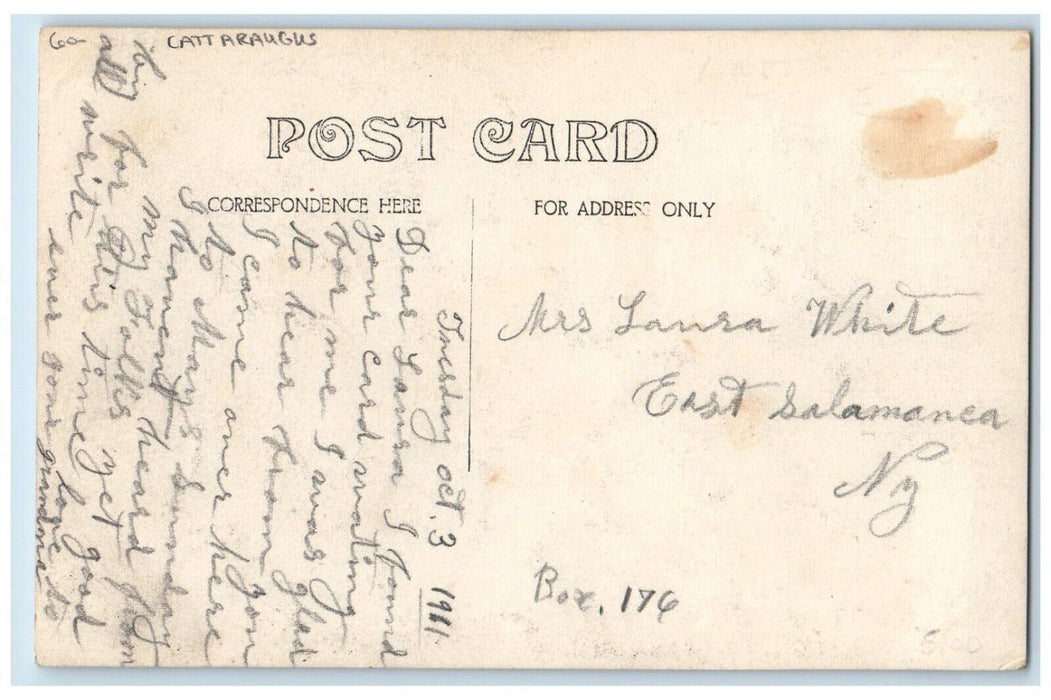 60-
CATTARAUGUS
POST CARD
CORRESPONDENCE HERE
FOR ADDRESS ONLY
Tuesday oct. 3 1911
Dear Laura I found
your card wating
for me I was glad
to hear from you
I came over here
to Mays sunday
I havent heard from
my Folks yet good
by for this time
all write
love to
ever your grandma
Mrs Laura White
East Salamanca
Ny
Box. 176
5.00